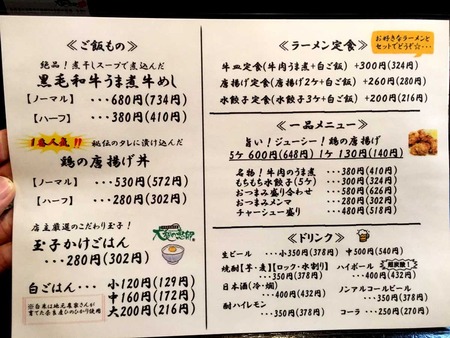 ≪ご飯もの≫
絶品！煮干しスープで煮込んだ
黒毛和牛うま煮牛めし
【ノーマル】 ･･･680円(734円)
【ハーフ】 ･･･380円(410円)
1番人気!! 秘伝のタレに漬け込んだ
鶏の唐揚げ丼
【ノーマル】 ･･･530円(572円)
【ハーフ】 ･･･280円(302円)
店主厳選のこだわり玉子！
玉子かけごはん
･･･280円(302円)
白ごはん･･･ 小120円(129円)
中160円(172円)
大200円(216円)
※白米は地元農家さんが
育てた奈良産ひのひかり使用
≪ラーメン定食≫
お好きなラーメンと
セットでどうぞ☆･･･
牛皿定食(牛肉うま煮+白ご飯) +300円(324円)
唐揚げ定食(唐揚げ2ケ+白ご飯) +260円(280円)
水餃子定食(水餃子3ケ+白ご飯) +200円(216円)
≪一品メニュー≫
旨い！ジューシー！鶏の唐揚げ
5ケ 600円(648円) 1ケ 130円(140円)
名物！牛肉のうま煮 ･･･380円(410円)
もちもち水餃子(5ケ) ･･･300円(324円)
おつまみ盛り合わせ ･･･580円(626円)
おつまみメンマ ･･･280円(302円)
チャーシュー盛り ･･･480円(518円)
≪ドリンク≫
生ビール ･･･小350円(378円) 中500円(540円)
焼酎【芋・麦】【ロック・水割り】
･･･350円(378円)
ハイボール 超炭酸！
･･･400円(432円)
日本酒(冷・燗)
･･･400円(432円)
ノンアルコールビール
･･･350円(378円)
酎ハイレモン
･･･350円(378円)
コーラ ･･･250円(270円)